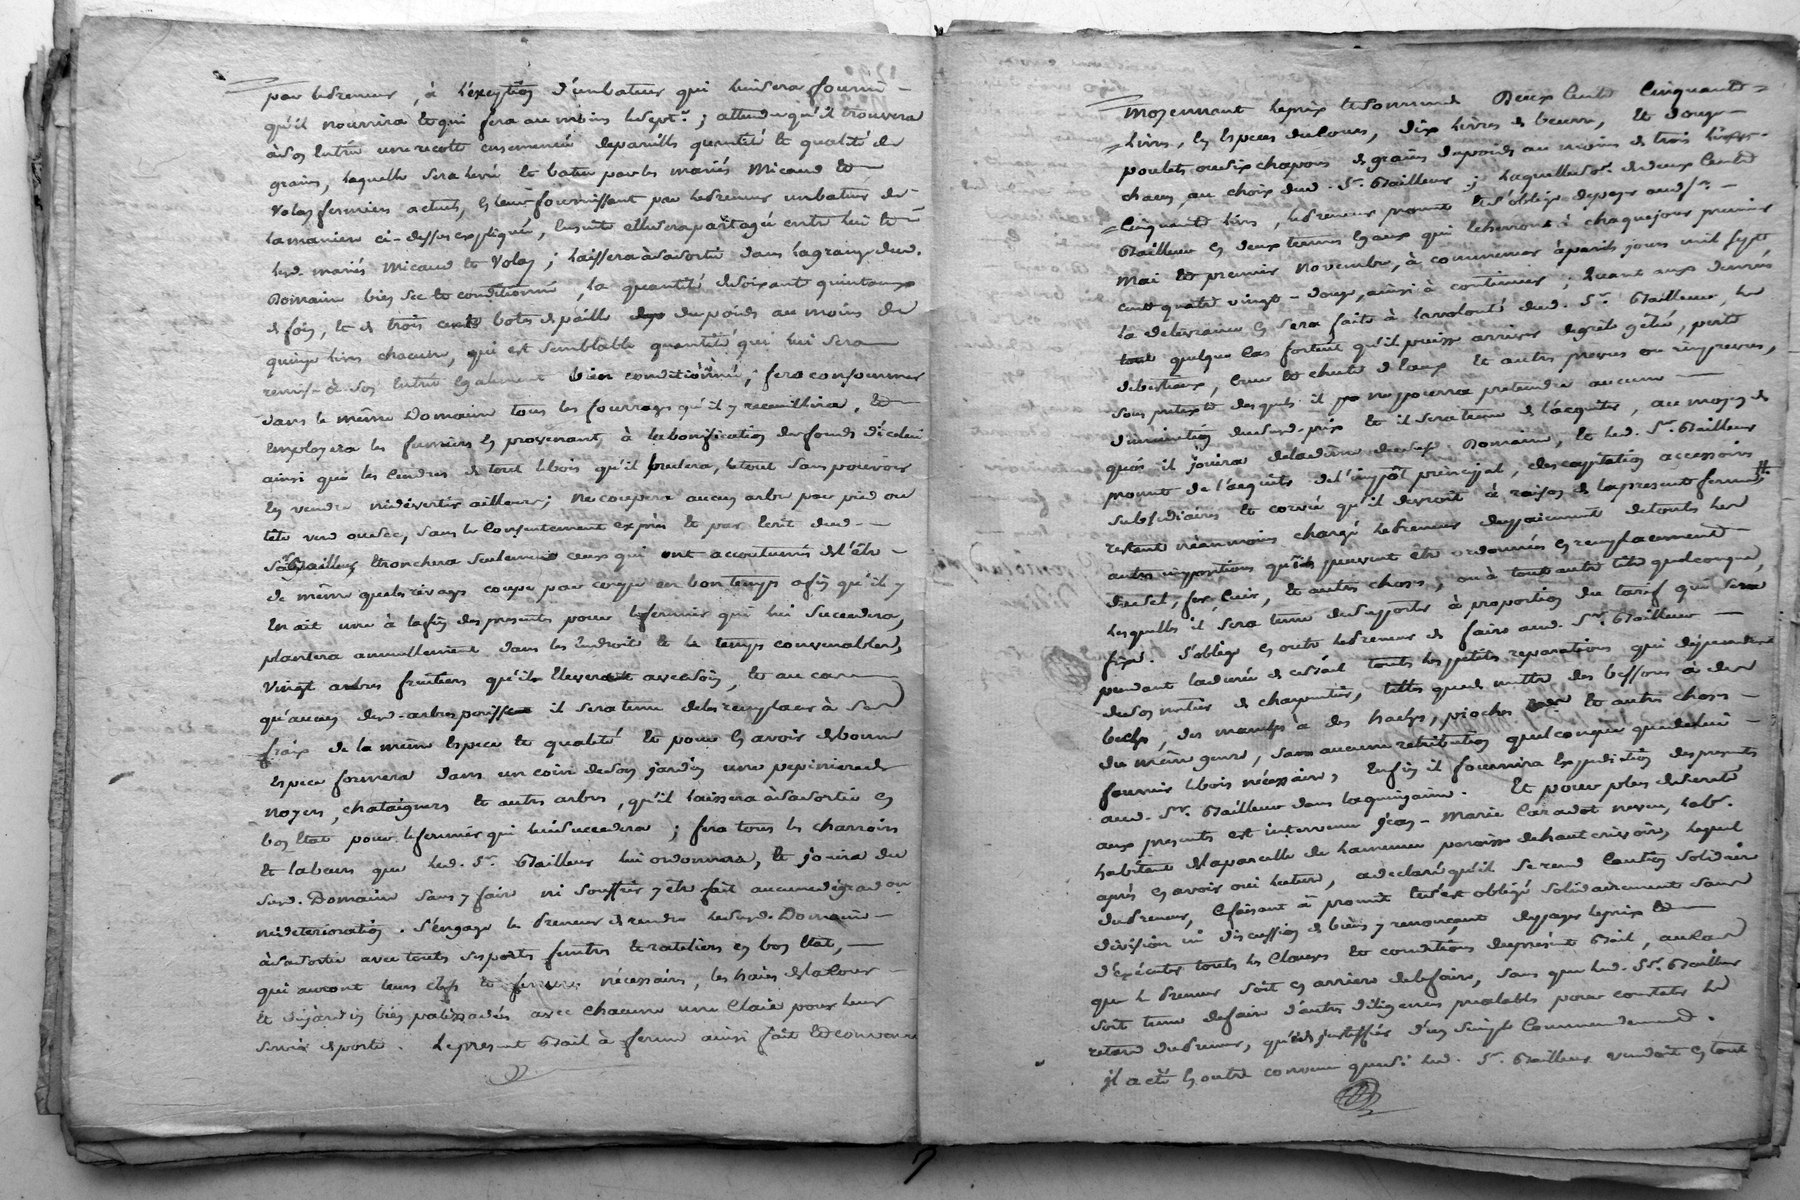 par le preneur, à l'exeption d'un bateur qui lui sera fourni
qu'il nourrira et qui sera au moins le sept.e; attendu qu'il trouvera
à son entrée une recolte ensemencée de pareille quantité et qualité de
grains, laquelle sera levée et batue par les mariés Micaud et
Volay fermiers actuels, en leur fournissant par le preneur un bateur de
la maniere ci-dessus expliquée, ensuite elle sera partagée entre lui et
lesd. mariés Micaud et Volay; laissera à sa sortie dans la grange dud.
Domaine bien sec et conditionné, la quantité de soixante quintaux
de foin, et de trois cents botes de paille du poids au moins de
quinze livres chacune, qui est semblable quantité qui lui sera
remise à son entrée également bien conditionné; fera consommer
dans le même Domaine tous les fourrages qu'il y recueillira, et
employera les fumiers en provenant, à la bonification des fonds d'icelui
ainsi que les cendres de tout le bois qu'il brulera, le tout sans pouvoir
en vendre ni divertir ailleurs; ne coupera aucun arbre par pied ou
tête verd ou sec, sans le consentement exprès et par ecrit dud.
S.r Bailleur, etronchera seulement ceux qui ont accoutumés de l'être
de même que les rivages coupe par coupe en bon temps afin qu'il y
en ait une à la fin des presentes pour le fermier qui lui succedera,
plantera annuellement dans les endroits et le temps convenables,
vingt arbres fruitiers qu'il elevera avec soin, et au cas
qu'aucun desd. arbres perisse il sera tenu de les remplacer à ses
fraix de la même espece et qualité et pour en avoir de bonne
espece formera dans un coin de son jardin une pepiniere de
noyers, chataigners et autres arbres, qu'il laissera à sa sortie en
bon etat pour le fermier qui lui succedera; fera tous les charrois
et labeurs que led. S.r Bailleur lui ordonnera, et jouira du
susd. Domaine sans y faire ni souffrir y être fait aucune dégradon
ni deterioration. S'engage le Preneur de rendre le susd. Domaine
à sa sortie avec toutes ses portes fenêtres et rateliers en bon etat,
qui auront leurs clefs et ferrures nécessaires, les haies de la cour
et du jardin bien palissadées avec chacune une claie pour leur
servir de porte. Le present Bail à ferme ainsi fait et convenu
moyennant le prix et somme de Deux Cents Cinquante
livres, en especes du cours, dix livres de beurre, et douze
poulets ou six chapons de grains du poids au moins de trois livres
chacun au choix dud. S.r Bailleur; laquelle so.e de deux cents
cinquante livres, le preneur promet et s'oblige de payer aud. S.r
Bailleur en deux termes egaux qui echerront à chaque jour premier
mai et premier Novembre, à commencer à pareils jours mil sept
cent quatre vingt-douze, ainsi à continuer; quant aux denrées
la delivrance en sera faite à la volonté dud. S.r Bailleur, le
tout quelque cas fortuit qu'il puisse arriver de grêle gêlée, perte
de bestiaux, crue et chute d'eaux et autres prevus ou imprevus,
sous pretexte desquels il ne pourra pretendre aucune
diminution du susd. prix et il sera tenu de l'acquiter, au moyen de
quoi il jouira de la du susd. Domaine, et led. S.r Bailleur
promet de l'acquiter de l'impôt principal, de capitation accessoires
subsidiaires et corvée qu'il devroit à raison de la presente ferme #
restant néanmoins chargé le Preneur du payement de toutes les
autres impositions qui peuvent être ordonnées en remplacement
du sel, fer, cuir, et autres choses, ou à tout autre titre quelconque,
lesquelles il sera tenu de suporter à proportion du tarif qui sera
fixé. S'oblige en outre le Preneur de faire aud. S.r Bailleur
pendant la durée de ce Bail toutes les petites reparations qui dependront
de son metier de charpentier, telles que de mettre des bessons à des
beches, des manches à des haches, pioches et autres choses
du même genre, sans aucune retribution quelconque que de lui
fournir le bois nécessaire, Enfin il fournira Expedition des presentes
aud. S.r Bailleur dans la quinzaine. Et pour plus de sureté
aux presentes est intervenu Jean-Marie Caradot neveu, hab.
habitant de la parcelle de hameau paroisse de haut , lequel
après en avoir oui lecture, a declaré qu'il se rend caution solidaire
du Preneur, ce faisant a promit et s'est obligé solidairement sans
division ni discussion de biens y renonçant de payer le prix et
d'exécuter toutes les clauses et conditions du présent Bail, au cas
que le Preneur soit en arriere de le faire, sans que led. S.r Bailleur
soit tenu de faire d'autres diligences prealables pour constater le
retard du Preneur, que de justiffier d'un simple Commandement.
il a été en outre convenu que si led. S.r Bailleur vendoit en tout